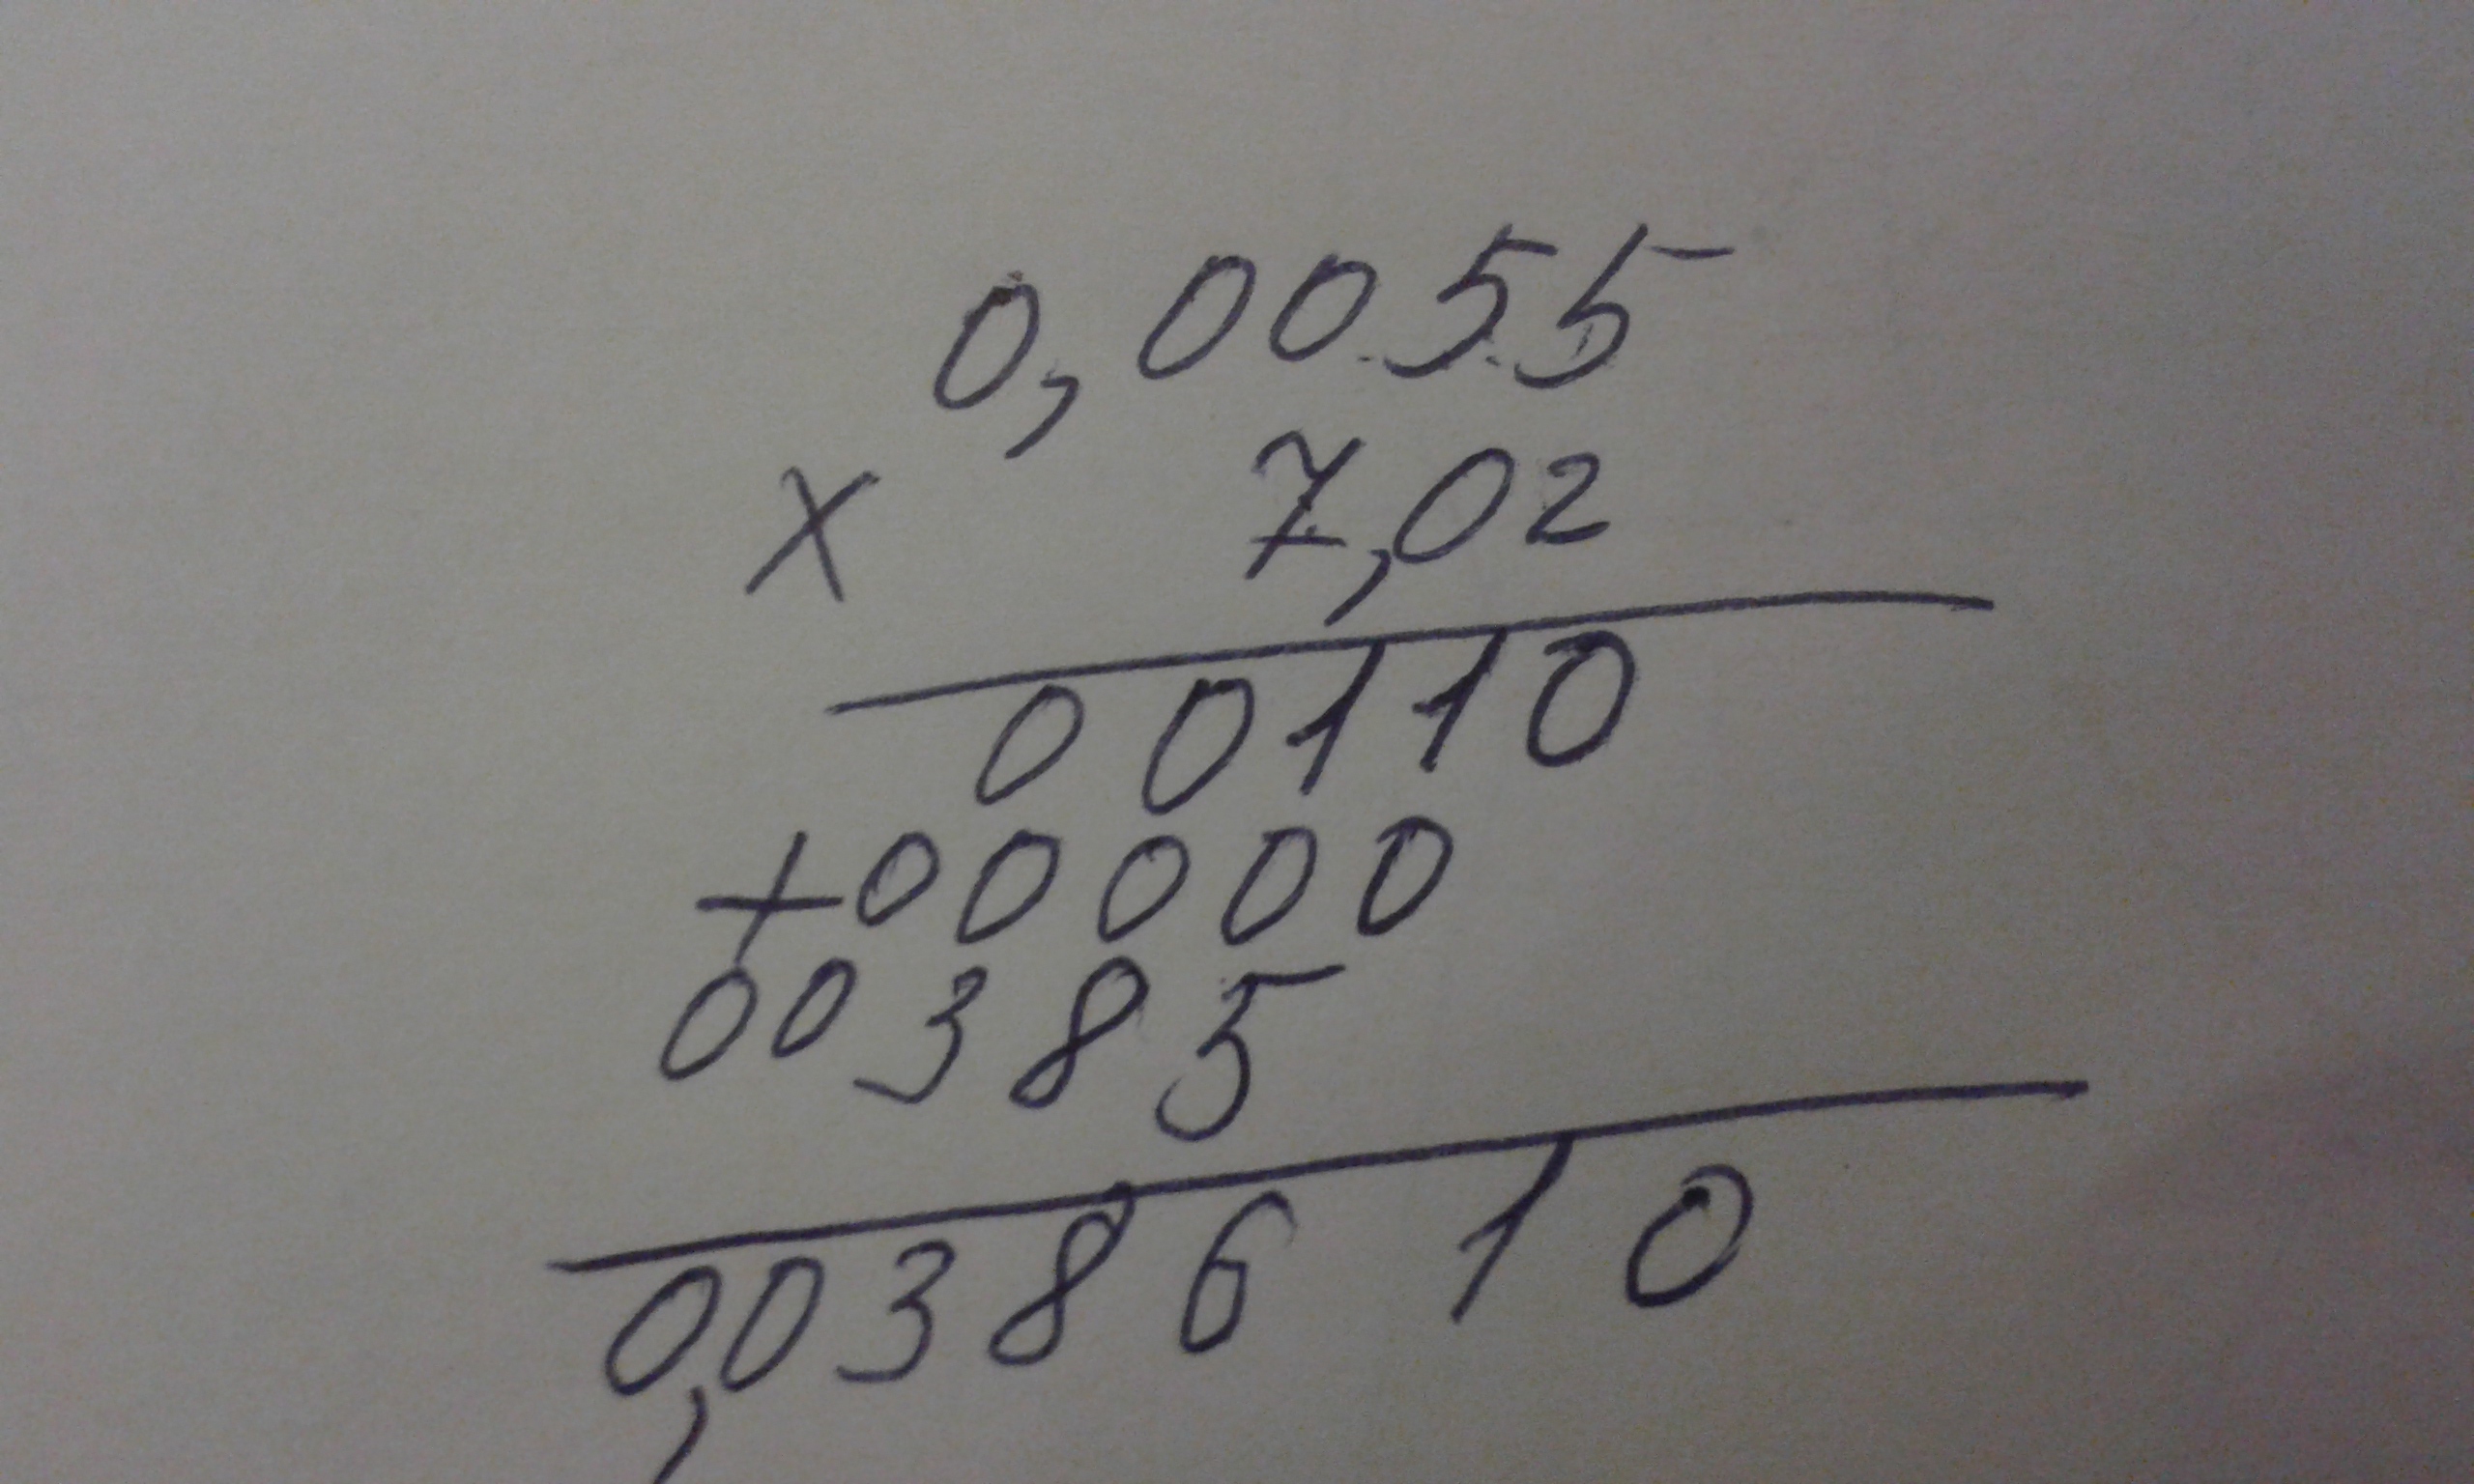 0,0055
x 7,02
00110
+00000
00385
0,038610